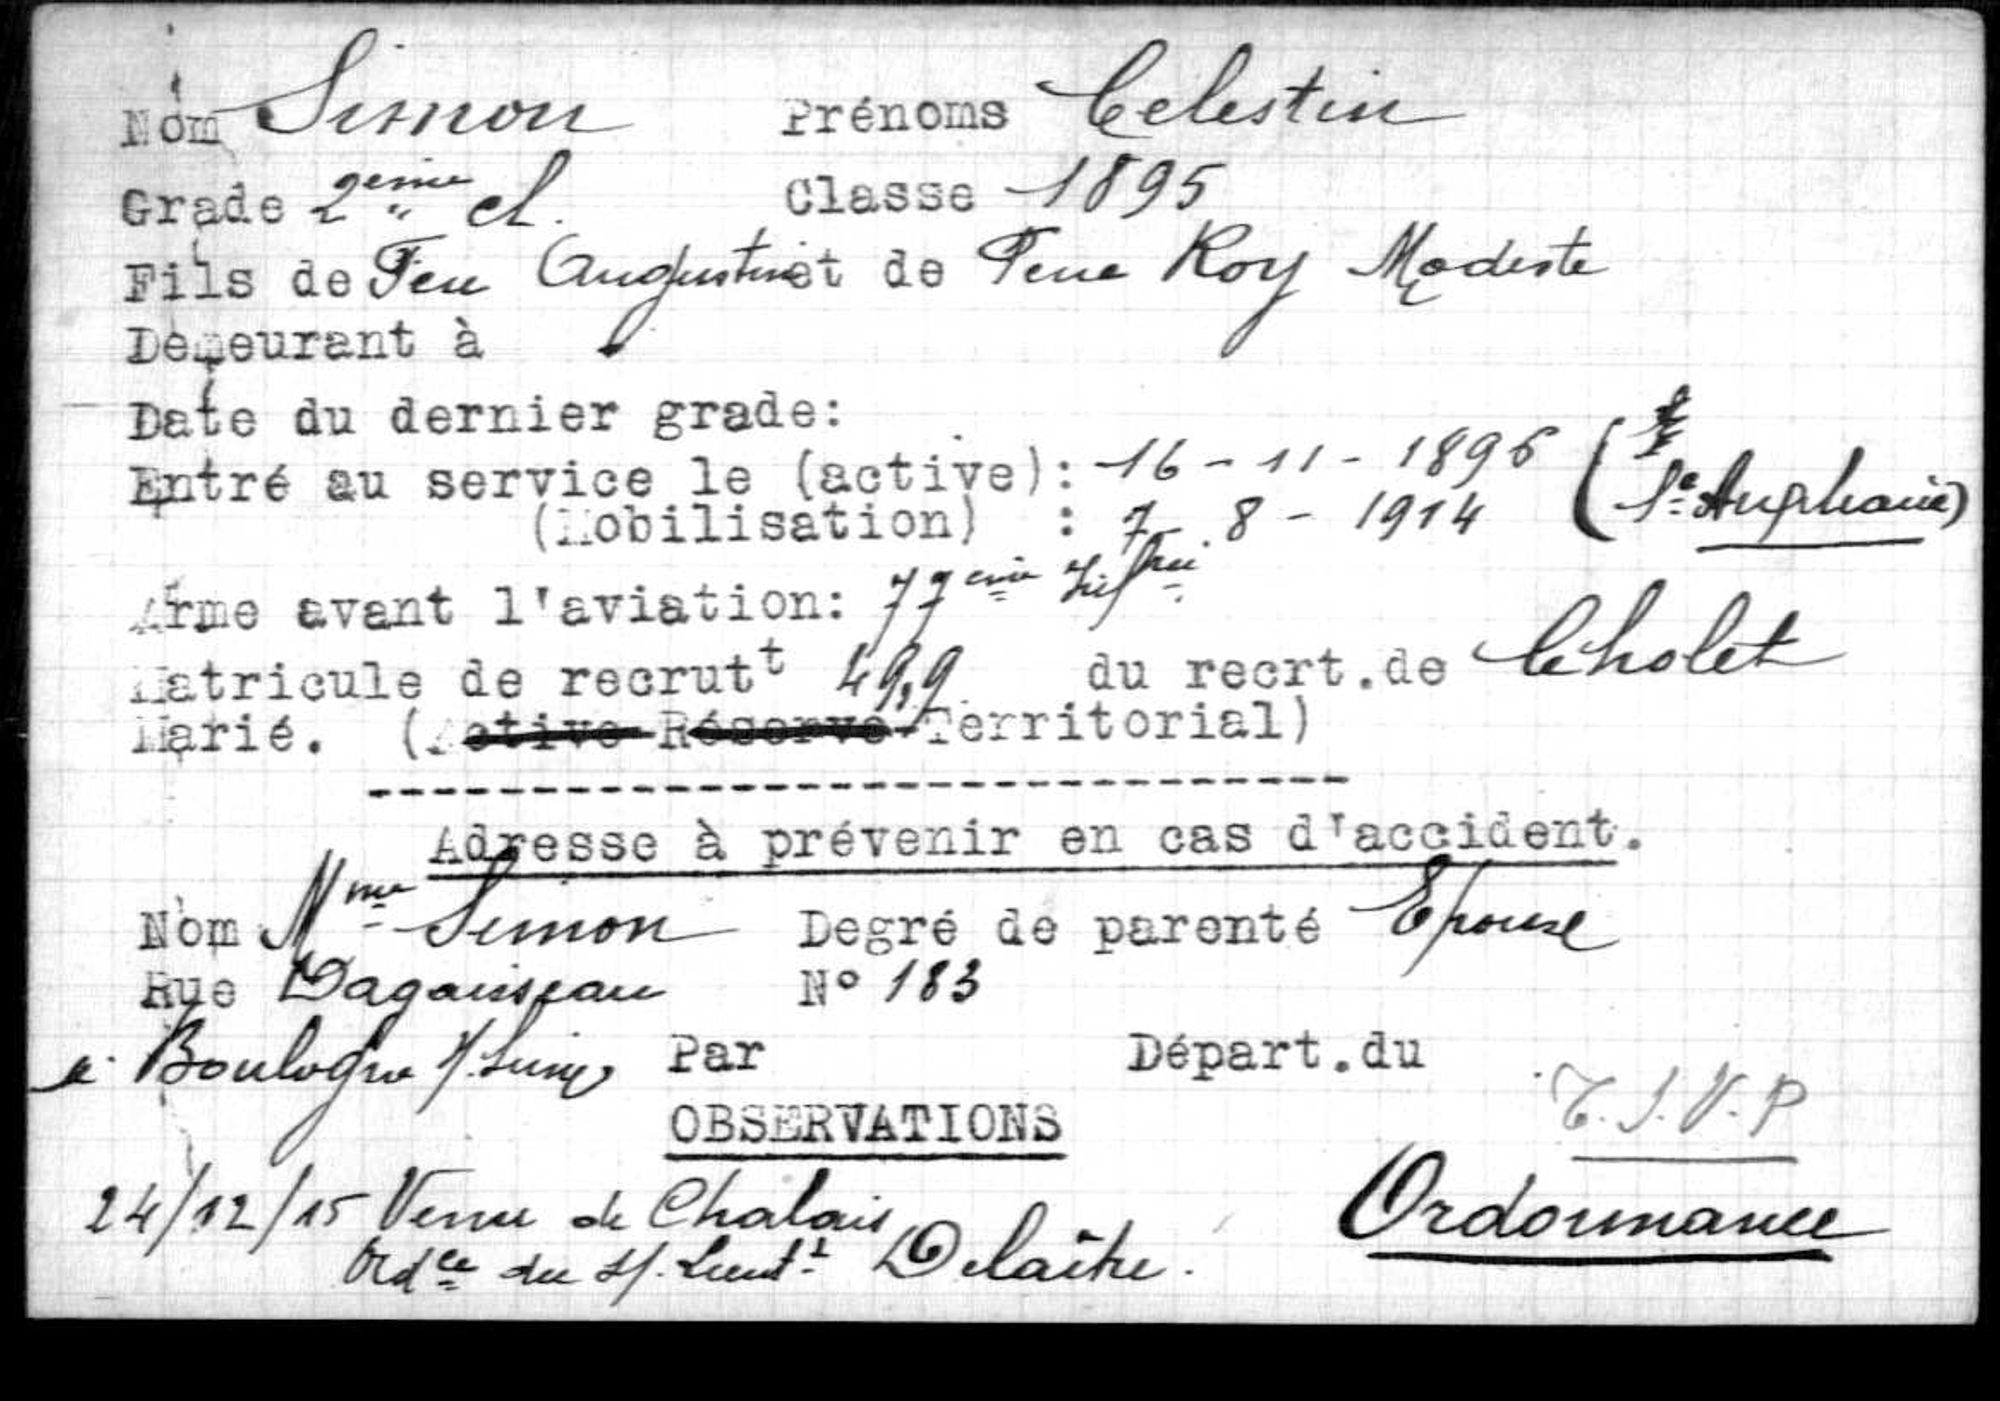 Nom Simon Prénoms Celestin
Grade 2ème cl. Classe 1895
Fils de Feu Augustin et de Feue Roy Modeste
Demeurant à
Date du dernier grade:
Entré au service le (active): 16 - 11 - 1896
(Mobilisation) : 7 - 8 - 1914
Arme avant l'aviation: 77ème Inftrie
Matricule de recrutt 499 du recrt.de Cholet
Marié. (Active Réserve Territorial)
Adresse à prévenir en cas d'accident.
Nom Mme Simon Degré de parenté Epouse
Rue N° 183
à Boulogne s/ Seine Par Départ.du
T.S.V.P
OBSERVATIONS
24/12/15 Venu de Chalais Ordonnance
Ordce du s/. Lieutt Delaître.